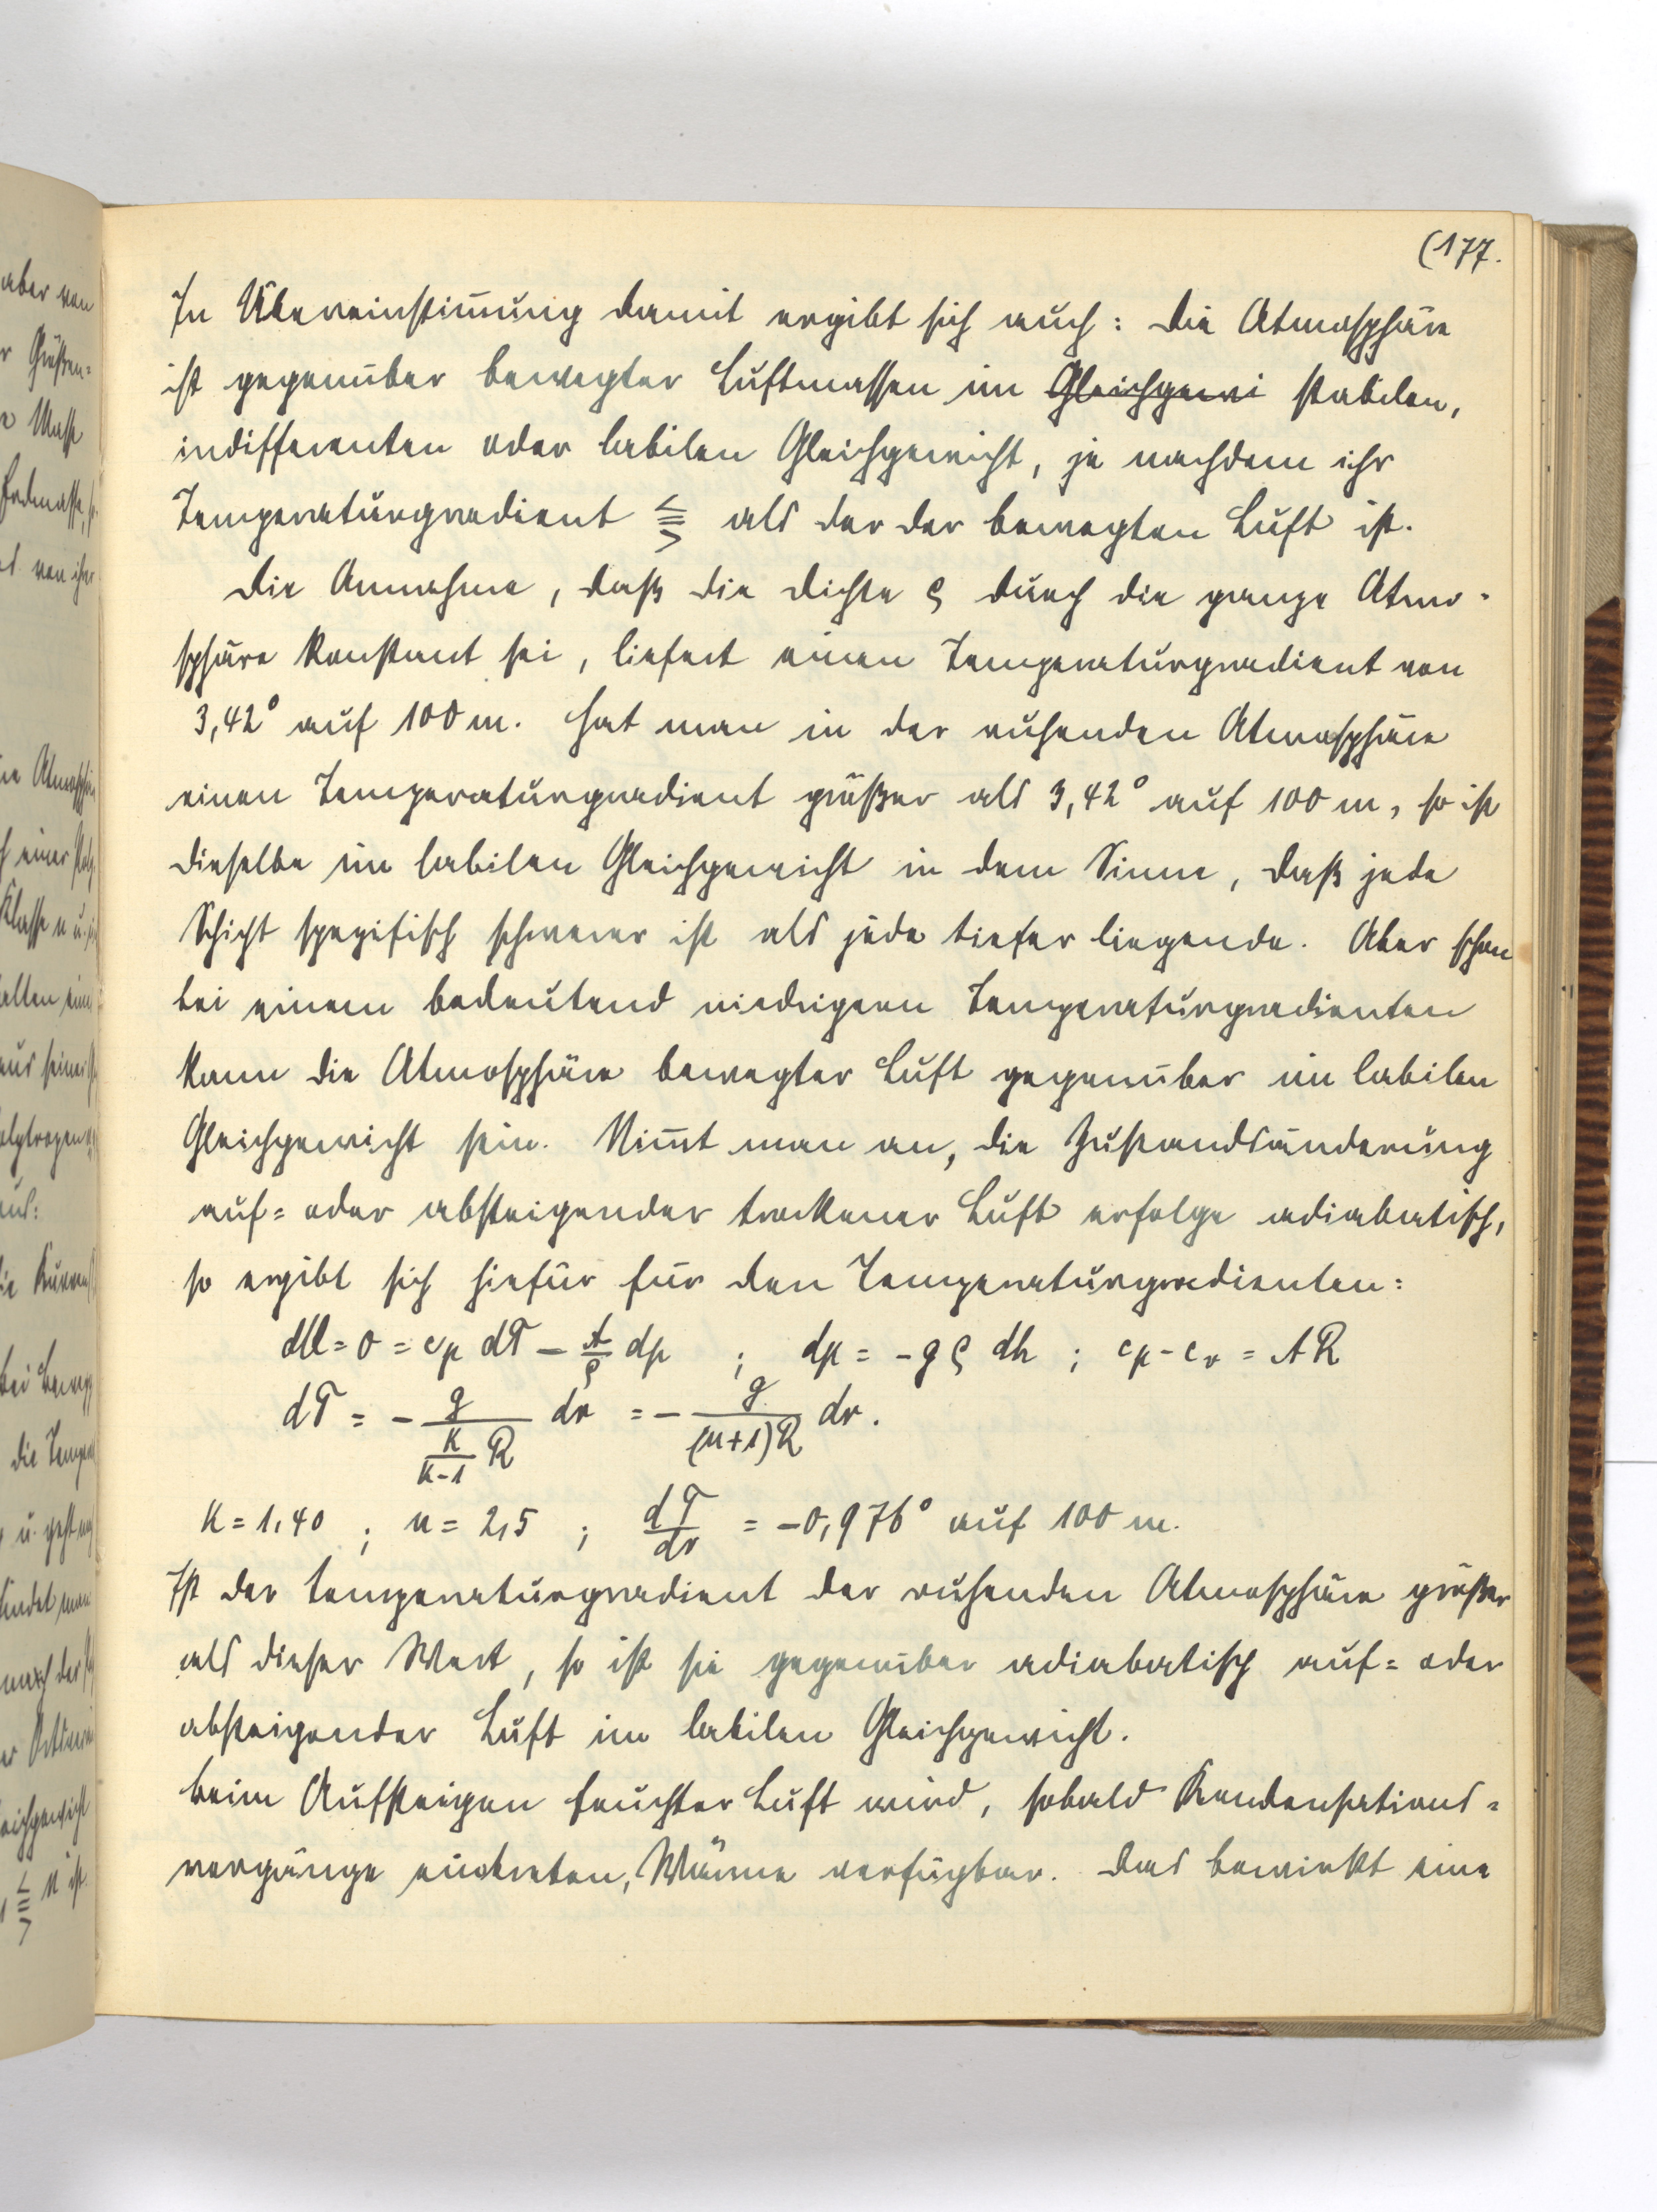 (177.
In Übereinstim̅ung damit ergibt sich auch: Die Atmosphäre
ist gegenüber bewegter Luftmassen im ~~Gleichgewi~~ stabilen,
indifferenten oder labilen Gleichgewicht, je nachdem ihr
Temperaturgradient ⪋ als der der bewegten Luft ist.
Die Annahme, daß die Dichte ϱ durch die ganze Atmo-
sphäre konstant sei, liefert einen Temperaturgradient von
3,42° auf 100 m. Hat man in der ruhenden Atmosphäre
einen Temperaturgradient größer als 3,42° auf 100 m, so ist
dieselbe im labilen Gleichgewicht in dem Sinne, daß jede
Schicht spezifisch schwerer ist als jede tiefer liegende. Aber schon
bei einem bedeutend niedrigeren Temperaturgradienten
kann die Atmosphäre bewegter Luft gegenüber im labilen
Gleichgewicht sein. Nim̅t man an, die Zustandsänderung
auf- oder absteigender trockener Luft erfolge adiabatisch,
so ergibt sich hiefür für den Temperaturgradienten:
dQ = 0 = c_p dT - A/ϱ dp ; dp = -gϱ dh ; c_p - c_v = AR
dT = - g/(κ/(κ-1) R) dr = - g/((n+1)R) dr.
κ = 1,40 ; n = 2,5 ; dT/dr = -0,976° auf 100 m.
Ist der Temperaturgradient der ruhenden Atmosphäre größer
als dieser Wert, so ist sie gegenüber adiabatisch auf- oder
absteigender Luft im labilen Gleichgewicht.
Beim Aufsteigen feuchter Luft wird, sobald Kondensations-
vorgänge eintreten, Wärme verfügbar. Das bewirkt eine